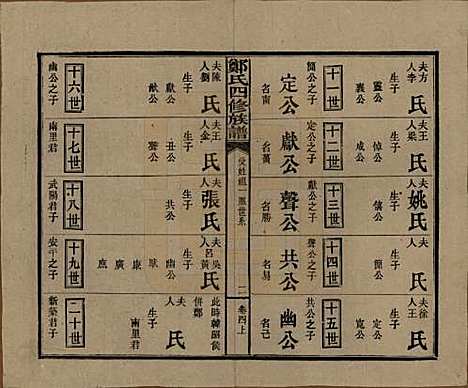 夫方
人李
氏
生子
靈公
襄公
十一世
簡公之子
定公
名甯
夫王
人梁
氏
生子
悼公
成公
十二世
定公之子
獻公
名蠆
夫
人
姚氏
生子
僖公
十三世
獻公之子
聲公
名勝
夫
人
氏
生子
簡公
十四世
聲公之子
共公
名易
夫徐
人王
氏
生子
寬公
十五世
共公之子
幽公
名己
鄭氏四修族譜
受姓祖一派世系
二
卷四上
夫陳
人劉
氏
生子
獻公
十六世
幽公之子
夫王
人金
氏
生子
丑公
十七世
南里君
夫
人
張氏
生子
共公
十八世
武陽君子
夫吳
人呂黃
氏
生子
幽公
康
廣
庶
十九世
安平之子
此時韓昭侯
併鄭
夫
人
氏
生子
南里君
二十世
新築君子